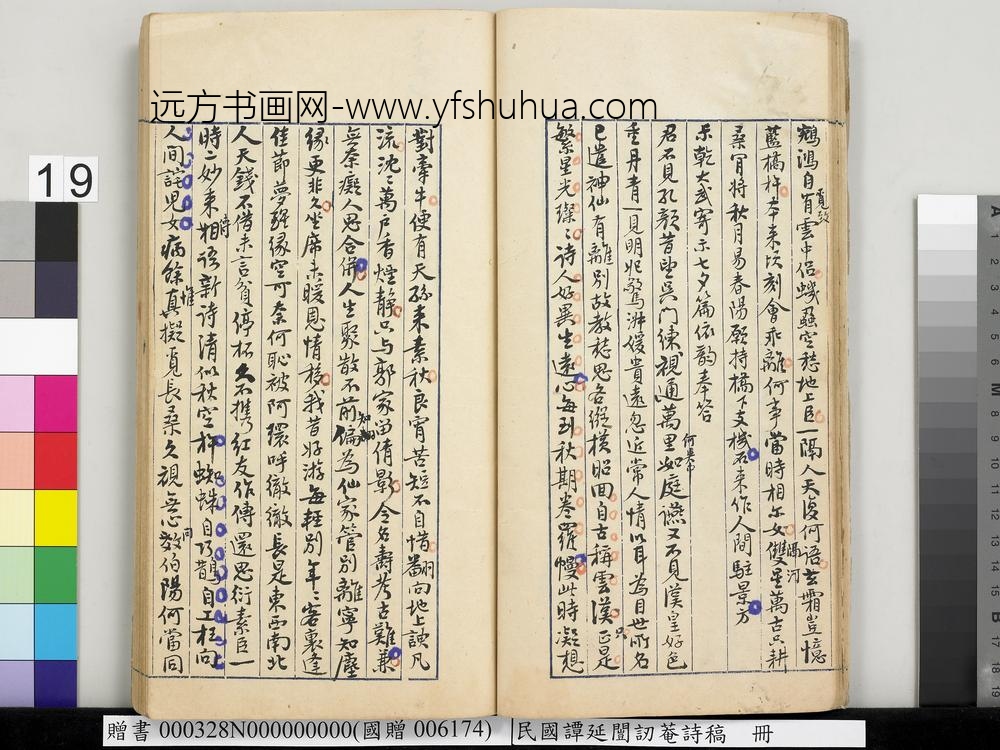 远方书画网-www.yfshuhua.com
19
鵝鴻自有雲中侣蟣蝨空愁地上臣一隔人天復何語玄霜豈憶
藍橋杵本來
刻會乖離何事當時相尔女雙星萬古只耕
桑肯將秋月易春陽願持橋下支機石來作人間駐景方
乾大武寄示七夕篇依韵奉答
君不見孔顏昔望吳門練視通萬里如庭
又不見漢皇好色
重丹青一見明妃驚
媛貴遠忽近常人情以耳為目世所名
已遣神仙有離別故教愁思各縱橫昭回自古稱雲漢正是
繁星光璨璨詩人好異生遠心每到秋期卷羅幔此時凝想
對牽牛便有天孫來素秋良宵苦短不自惜翻向地上諛凡
流沈沈萬戶香煙静只与郭家留倩影令名壽考古難兼
無奈癡人思合併人生聚散不前知偏為仙家管別離寧知塵
緣更非久坐席未暖恩情移我昔好游每輕別年年客裏逢
佳節夢醒緣空可奈何恥被阿環呼徹徹長是東西南北
人天錢不借未言貧停杯久不携紅友作傳還思衍素臣一
時二妙來相語新詩清似秋空杼蜘蛛自巧鵲自工枉向
人間詫兒女病餘真擬覓長桑久視無心效伯陽何當同
贈書 000328N000000000(國贈 006174)
民國譚延闓訒菴詩稿 冊